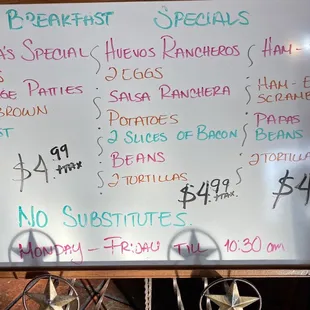 BREAKFAST SPECIALS
A'S SPECIAL
GE PATTIES
BROWN
$4.99
+TAX
HUEVOS RANCHEROS
2 EGGS
SALSA RANCHERA
POTATOES
2 SLICES OF BACON
BEANS
2 TORTILLAS
$4.99
+TAX
HAM-
HAM-E
SCRAME
PAPAS
BEANS
2 TORTILLA
$4
NO SUBSTITUTES.
MONDAY - FRIDAY TILL 10:30 am